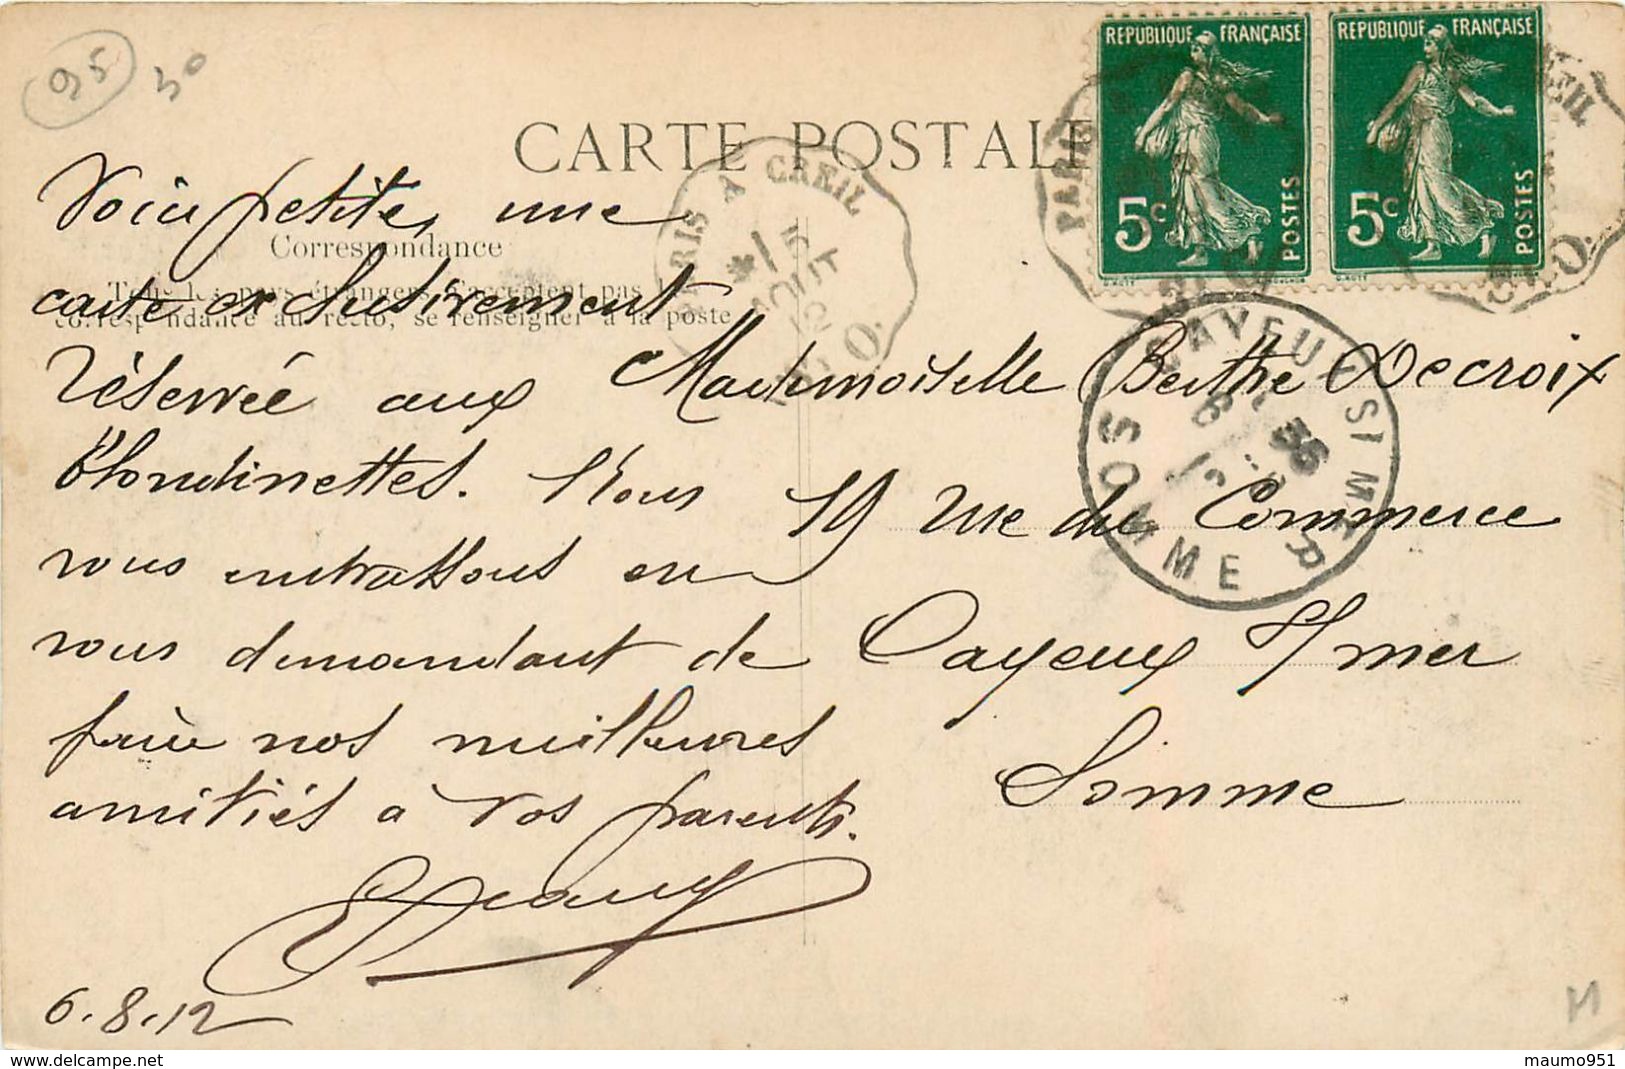 95
30
CARTE POSTALE
REPUBLIQUE FRANÇAISE
5c POSTES
REPUBLIQUE FRANÇAISE
5c POSTES
PARIS A CREIL
*1 5
AOUT
12
Correspondance
Tous les pays étrangers n'acceptent pas
correspondance au recto, se renseigner à la poste
Voici petite, une
carte exclusivement
réservée aux
blondinettes. Nous
vous embrassons en
vous demandant de
faire nos meilleures
amitiés à vos parents.
6.8.12
CAYEUX SUR MER
SOMME
Mademoiselle Berthe Decroix
19 rue du Commerce
Cayeux s/mer
Somme
M
delcampe.net
maumo951